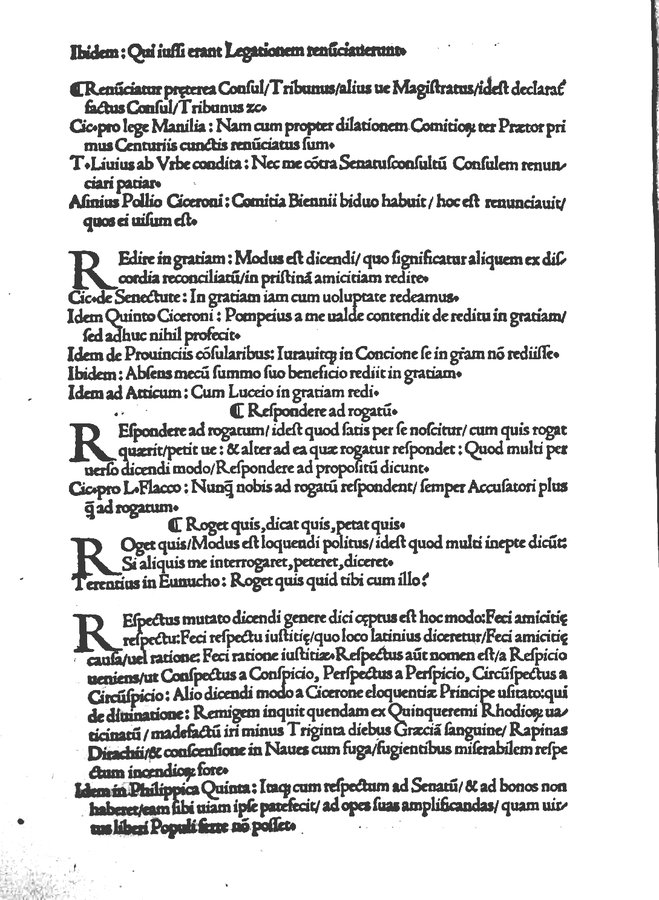 Ibidem : Qui iuſſi erant Legationem renūciatierunt.
⁋Renūciatur pręterea Conſul/Tribunus/alius ue Magiſtratus/ideſt declarat᷑
factus Conſul/Tribunus ⁊c.
Cic.pro lege Manilia : Nam cum propter dilationem Comitioꝝ ter Prætor pri
mus Centuriis cunctis renūciatus ſum.
T.Liuius ab Vrbe condita : Nec me cōtra Senatuſconſultū Conſulem renun/
ciari patiar.
Aſinius Pollio Ciceroni : Comitia Biennii biduo habuit / hoc eſt renunciauit/
quos ei uiſum eſt.
REdire in gratiam : Modus eſt dicendi/ quo ſignificatur aliquem ex diſ/
cordia reconciliatū/in priſtinā amicitiam redire.
Cic.de Senectute : In gratiam iam cum uoluptate redeamus.
Idem Quinto Ciceroni : Pompeius a me ualde contendit de reditu in gratiam/
ſed adhuc nihil profecit.
Idem de Prouinciis cōſularibus: Iurauitq; in Concione ſe in gr̄am nō rediiſſe.
Ibidem : Abſens mecū ſummo ſuo beneficio rediit in gratiam.
Idem ad Atticum : Cum Luceio in gratiam redi.
⁋ Reſpondere ad rogatū.
REſpondere ad rogatum/ ideſt quod ſatis per ſe noſcitur/ cum quis rogat
quærit/petit ue : & alter ad ea quæ rogatur reſpondet : Quod multi per
uerſo dicendi modo/Reſpondere ad propoſitū dicunt.
Cic.pro L.Flacco : Nunq̄ nobis ad rogatū reſpondent/ ſemper Accuſatori plus
q̄ ad rogatum.
⁋ Roget quis,dicat quis,petat quis.
ROget quis/Modus eſt loquendi politus/ ideſt quod multi inepte dicūt:
Si aliquis me interrogaret,peteret,diceret.
Terentius in Eunucho : Roget quis quid tibi cum illo?
REſpectus mutato dicendi genere dici cęptus eſt hoc modo:Feci amicitię
reſpectu:Feci reſpectu iuſtitię/quo loco latinius diceretur/Feci amicitię
cauſa/uel ratione: Feci ratione iuſtitiæ.Reſpectus aūt nomen eſt/a Reſpicio
ueniens/ut Conſpectus a Conſpicio, Perſpectus a Perſpicio, Circūſpectus a
Circūſpicio : Alio dicendi modo a Cicerone eloquentiæ Principe uſitato:qui
de diuinatione : Remigem inquit quendam ex Quinqueremi Rhodioꝝ ua/
ticinatū / madefactū iri minus Triginta diebus Græciā ſanguine/ Rapinas
Dirachii/& conſcenſione in Naues cum fuga/fugientibus miſerabilem reſpe
ctum incendioꝝ fore.
Idem in Philippica Quinta : Itaq; cum reſpectum ad Senatū/ & ad bonos non
haberet/eam ſibi uiam ipſe patefecit/ ad opes ſuas amplificandas/ quam uir/
tus liberi Populi ferre nō poſſet.